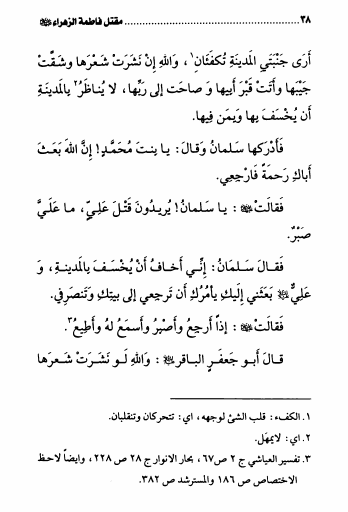 ٣٨ ........................................ مقتل فاطمة الزهراء ﷺ
أَرَى جَنْبَتَيِ المَدينَةِ تُكفَئَانِ١، وَاللهِ إِنْ نَشَرَتْ شَعْرَها وشَقَّتْ
جَيْبَها وأَتَتْ قَبْرَ أَبيها وَ صاحَت إلى رَبِّها، لا يُناظَرُ٢ بالمَدينَةِ
أن يُخْسَفَ بِها وَبِمَن فِيها.
فَأَدْرَكها سَلمانُ وَقالَ: يا بنتَ مُحَمَّدٍ! إِنَّ اللهَ بَعَثَ
أَباكِ رَحمَةً فَارْجِعي.
فَقالَتْ ﷺ : يا سَلمانُ! يُريدُونَ قَتْلَ عَلِيٍّ، ما عَلَيَّ
صَبْرٌ.
فَقالَ سَلمَانُ: إِنِّي أَخافُ أَنْ يُخْسَفَ بِالمَدينةِ، وَ
عَلِيٌّ ﷺ بَعَثَني إِلَيكِ يأمُرُكِ أن تَرجعي إلى بيتِكِ وَتَنصَرِفي.
فَقالَتْ ﷺ : إذاً أَرجِعُ وأَصْبِرُ وأَسمَعُ لهُ وأُطيعُ٣.
قالَ أَبو جَعفَرٍ الباقرِ ﷺ : وَاللهِ لَو نَشَرَتْ شَعرَها
١. الكفء: قلب الشئ لوجهه، اي: تتحركان وتنقلبان.
٢. اي: لايمهل.
٣. تفسير العياشي ج ٢ ص٦٧، بحار الانوار ج ٢٨ ص ٢٢٨، وايضاً لاحظ
الاختصاص ص ١٨٦ والمسترشد ص ٣٨٢.